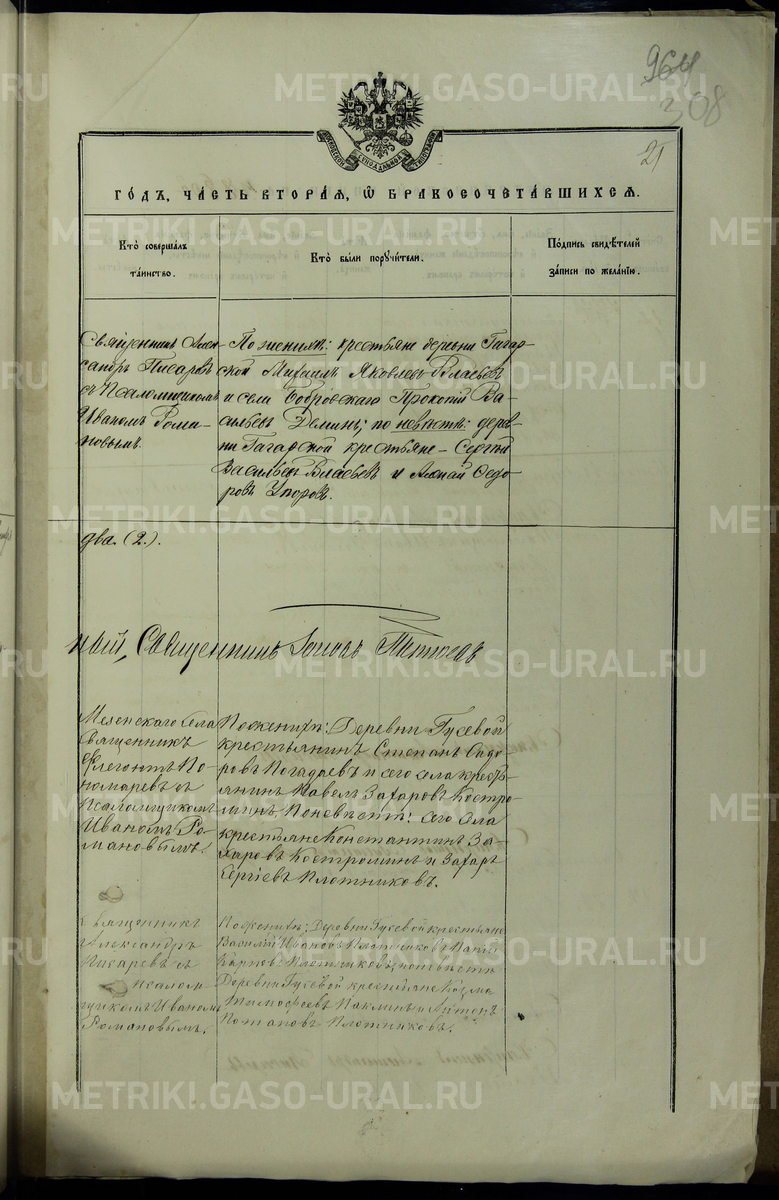 964
308
21
METRIKI.GASO-URAL.RU
Го́дъ, ча́сть втора́я, ѡ҆ бракосочета́вшихсѧ.
Кто̀ совершалъ та́инство.
Кто̀ были порꙋчи́тели.
По́дпись свидѣ́телей за́писи по жела́нїю.
Священникъ Алек-
сандръ Писаревъ
съ Псаломщикомъ
Иваномъ Рома-
новымъ.
По женихѣ: крестьяне деревни Гагар-
ской Михаилъ Яковлевъ Власьевъ
и села Бобровскаго Прокопій Ва-
сильевъ Деминъ; по невѣстѣ: дерев-
ни Гагарской крестьяне – Сергѣй
Васильевъ Власьевъ и Ѳедо-
ровъ Упоровъ.
два. (2.).
ный, Священникъ
Мезенскаго села
Священникъ
Флегонтъ По-
номаревъ съ
Псаломщикомъ
Иваномъ Ро-
мановымъ.
По женихѣ: Деревни Гусевой
крестьянинъ Степанъ Сидо-
ровъ Погадаевъ и сего села кресть-
янинъ Павелъ Захаровъ Костро-
минъ, По невѣстѣ: сего села
крестьяне Константинъ За-
харовъ Костроминъ и Захаръ
Сергіевъ Плотниковъ.
Священникъ
Александръ
Писаревъ съ
псалом-
щикомъ Иваномъ
Романовымъ.
По женихѣ: Деревни Гусевой крестьяне
Василій Ивановъ Плотниковъ
Карповъ Плотниковъ, по невѣстѣ
Деревни Гусевой крестьяне Козма
Тимофеевъ Паклинъ и Антонъ
Потаповъ Плотниковъ.